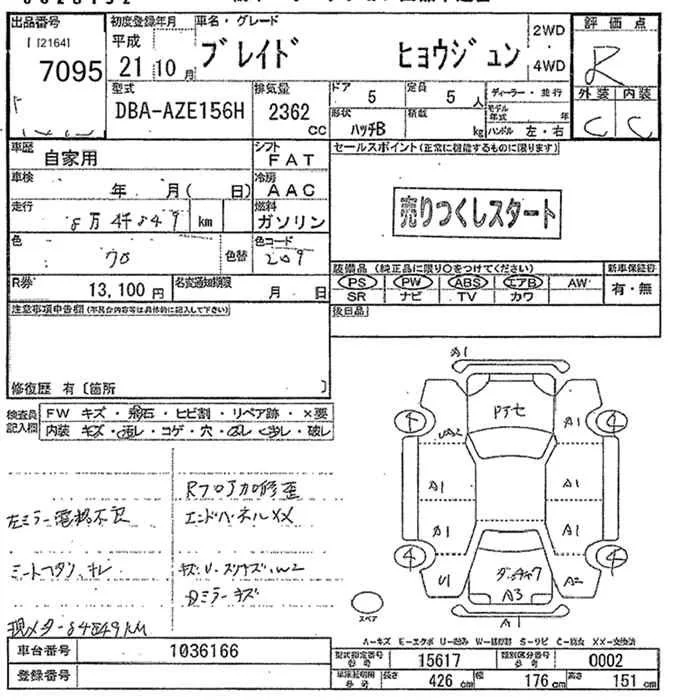 出品番号
[ [2164]
7095
初度登録年月
平成
21 10 月
車名・グレード
ブレイド ヒョウジュン
2WD
・
4WD
評価点
R
外装 内装
C C
型式
DBA-AZE156H
排気量
2362
cc
ドア
5
定員
5 人
形状
ハッチB
積載
kg
ディーラー・並行
モデル年式 年
ハンドル 左・右
車歴
自家用
シフト
FAT
車検
年 月( 日)
冷房
AAC
走行
8万4千849 km
燃料
ガソリン
色
クロ
色替
色コード
209
R券
13,100 円
名変通知期限
月 日
セールスポイント(正常に機能するものに限ります)
売りつくしスタート
装備品 (純正品に限り○をつけてください)
PS PW ABS エアB AW
SR ナビ TV カワ
新車保証書
有・無
後日品
注意事項申告欄(不具合内容等は具体的に記入して下さい)
修復歴 有〔箇所 〕
検査員
記入欄
FW キズ・飛石・ヒビ割・リペア跡・×要
内装 キズ・汚レ・コゲ・穴・
破レ
左ミラー電格不良
現メーター84849KM
Rフロア加修歪
エンドパネルXX
キズU・スリキズ・W2
ミラーキズ
A1
A2
A1
A1
A1
A1
A1
U1
A2
A3
A1
4
4
4
4
スペア
A-キズ E-エクボ U-凹み W-補修跡 S-サビ C-腐食 XX-交換済
車台番号
1036166
登録番号
型式指定番号
15617
類別区分番号
0002
長さ
426 cm
幅
176 cm
高さ
151 cm